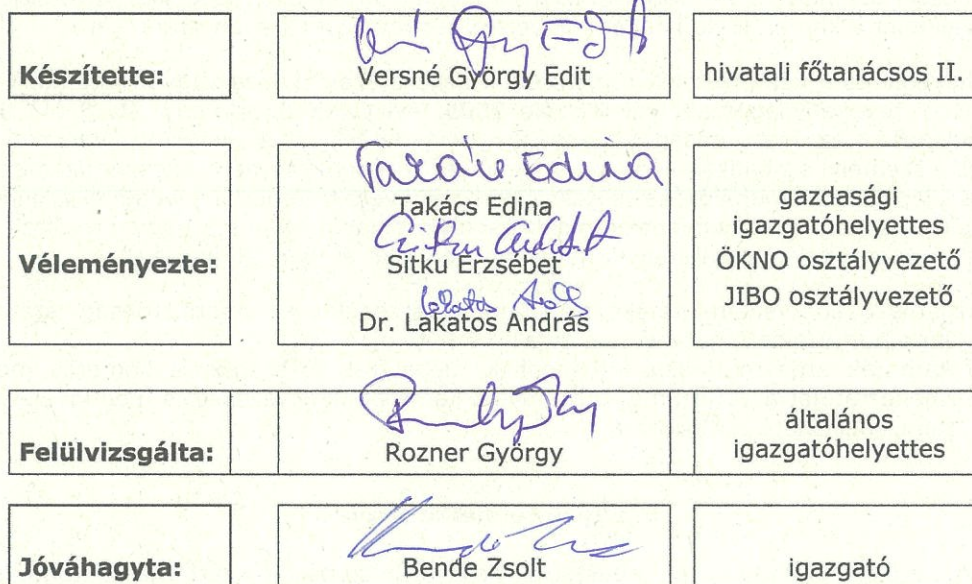 Készítette:
Versné György Edit
hivatali főtanácsos II.
Véleményezte:
Takács Edina
Takács Edina
Sitku Erzsébet
Lakatos András
Dr. Lakatos András
gazdasági
igazgatóhelyettes
ÖKNO osztályvezető
JIBO osztályvezető
Felülvizsgálta:
Rozner György
általános
igazgatóhelyettes
Jóváhagyta:
Bende Zsolt
igazgató